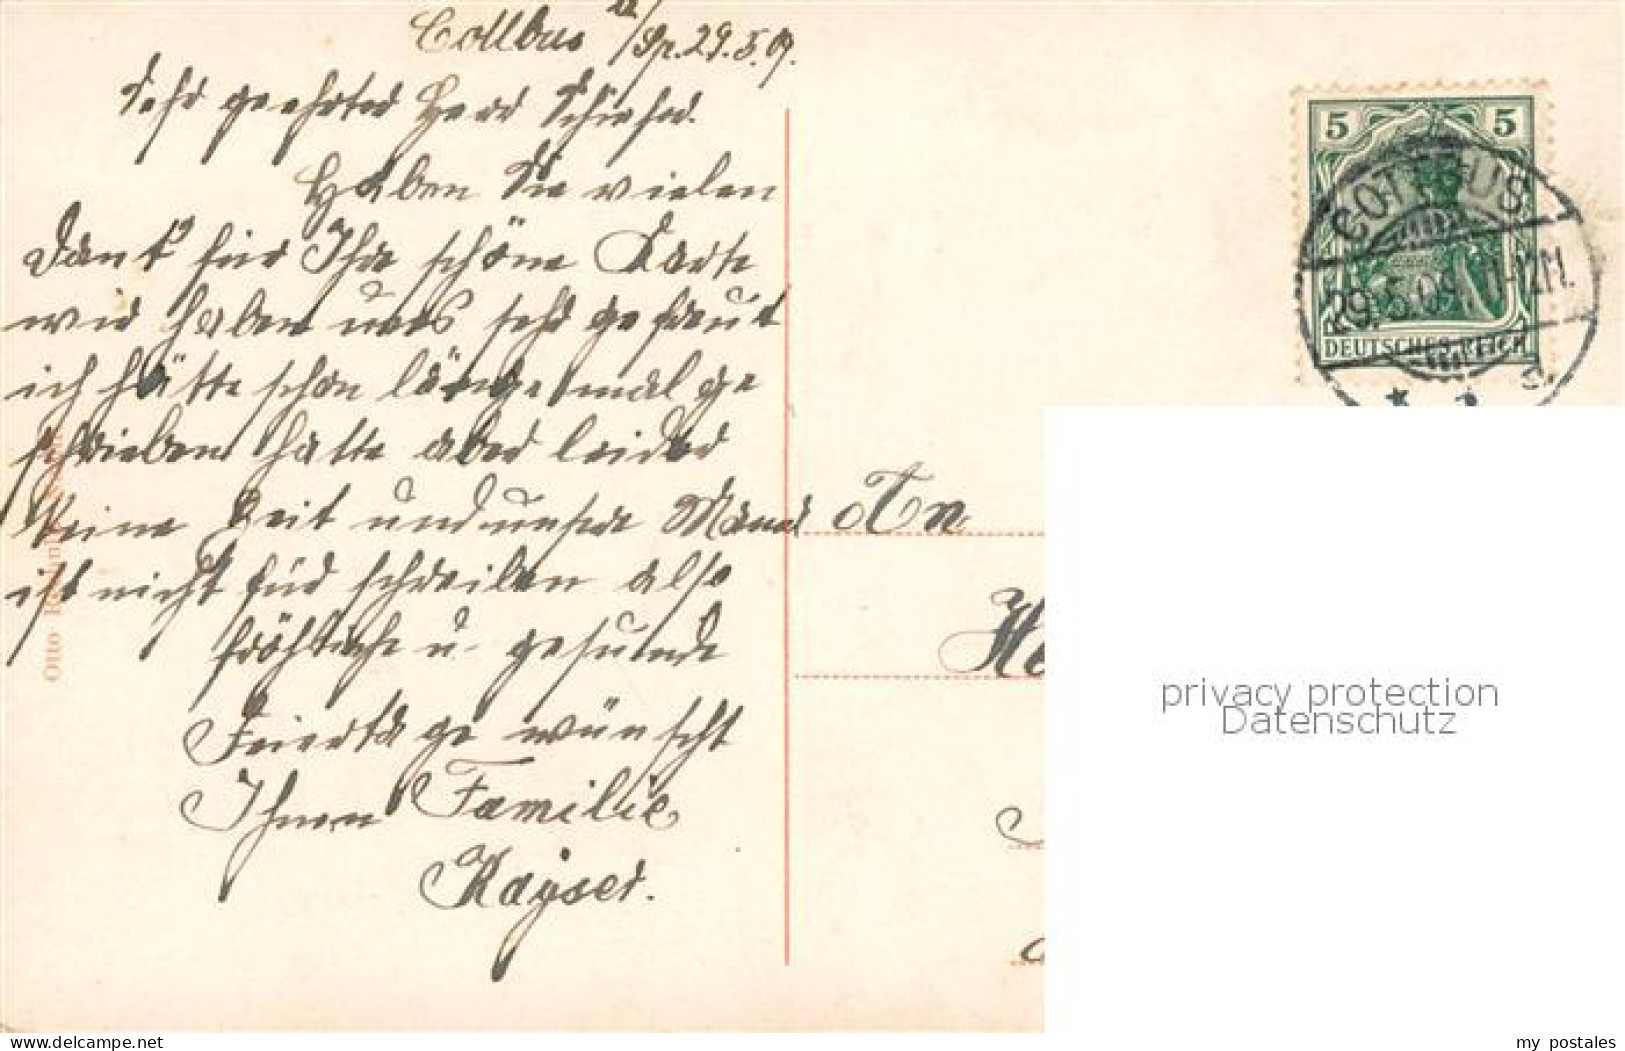 Cottbus a/Sp. 29.5.09.
Sehr geehrter Herr Schiefer.
Haben Sie vielen
Dank für Ihre schöne Karte
wir haben uns sehr gefreut
ich hätte schon länge mal ge
schrieben hatte aber leider
keine Zeit und unsere Männer
ist nicht für schreiben also
fröhliche u. gesunde
Feiertage wünscht
Ihnen Familie
Kayser.
Otto
5 5
DEUTSCHES REICH
COTTBUS
29.5.09. 11-12M.
An
He
privacy protection
Datenschutz
my postales